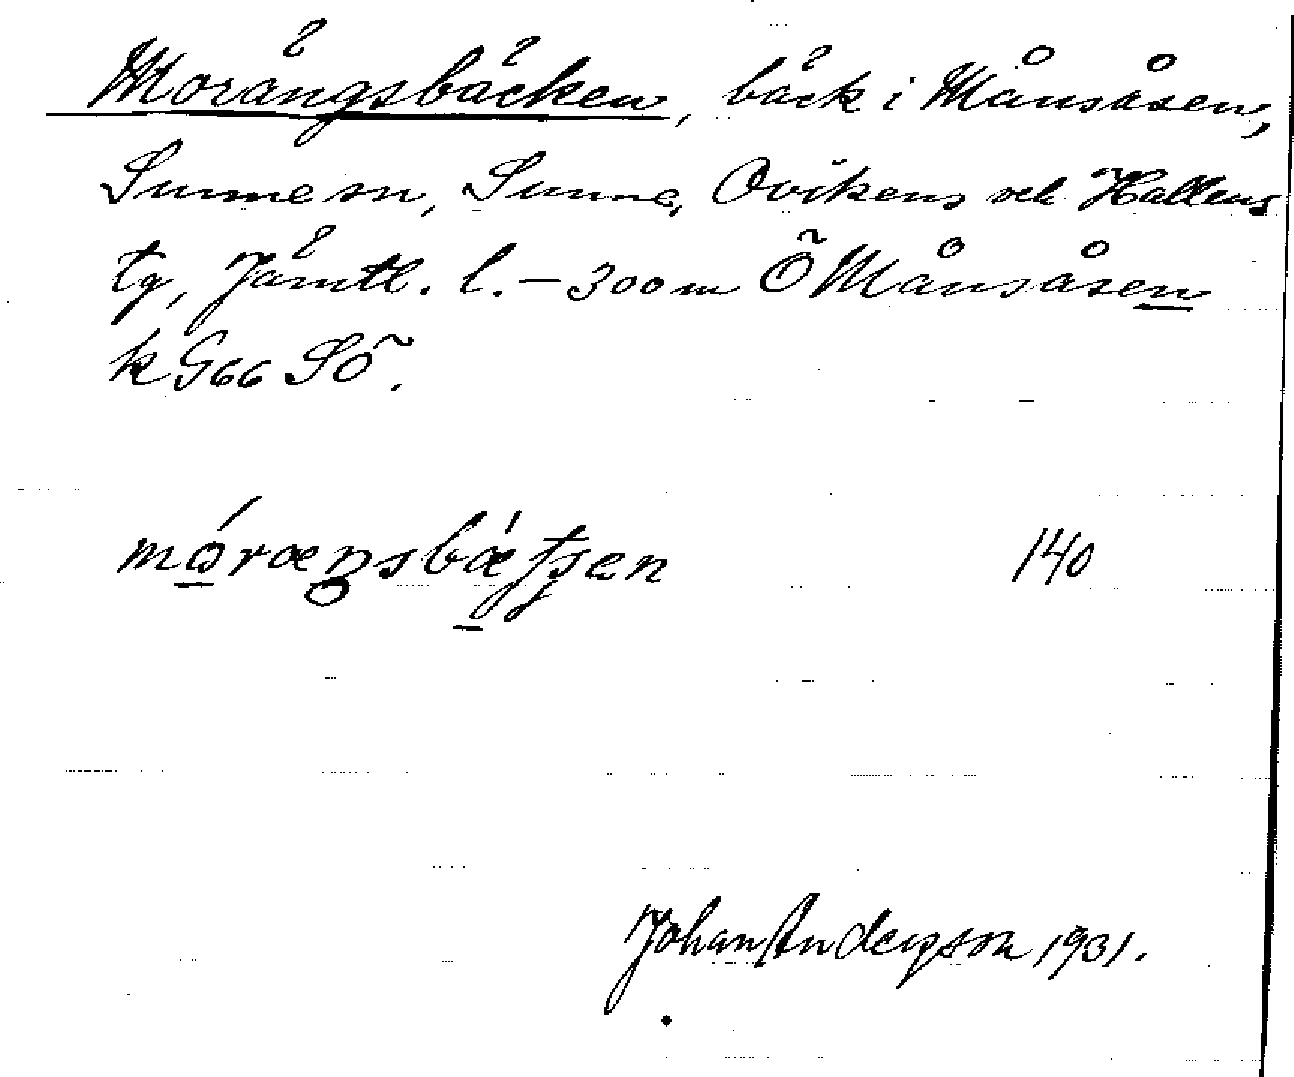 Morängsbäcken, bäck i Månsåsen,
Sunne sn, Sunne, Ovikens och Hallens
tg, Jämtl. l. – 300 m Ö Månsåsen
k G66 SÖ.
mórœŋsbœ́tʃen 140
Johan Anderson 1931.